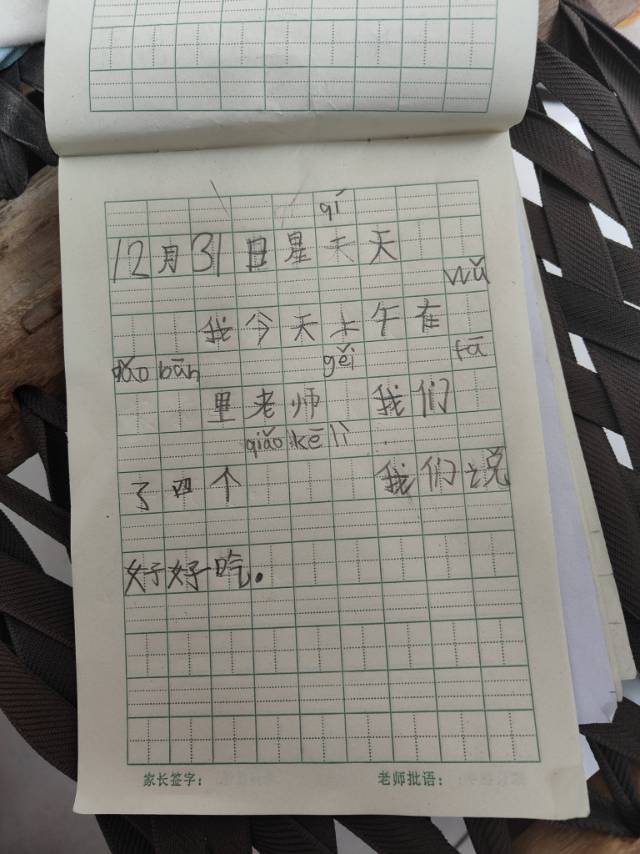 qī
12月31日星天天
wǔ
我今天上午在
dǎo bān gěi fā
里老师 我们
qiǎo kē lì
了四个 我们说
好好吃.
家长签字: 老师批语: